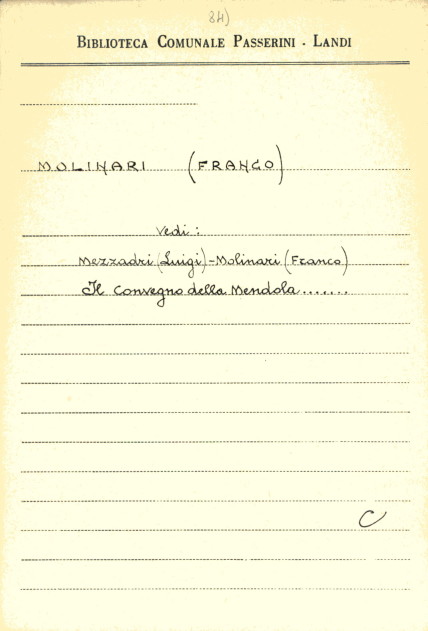 84)
BIBLIOTECA COMUNALE PASSERINI - LANDI
MOLINARI (FRANCO)
Vedi:
Mezzadri (Luigi) - Molinari (Franco)
Il Convegno della Mendola.......
C